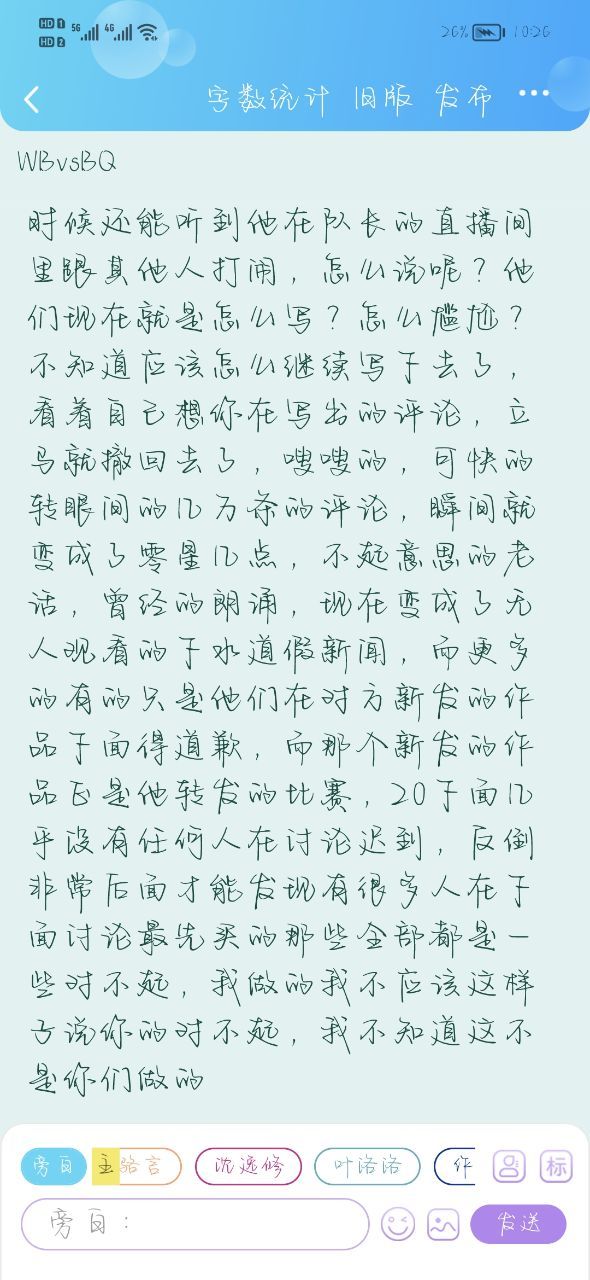 HD 1 5G 4G
HD 2
26% 10:26
字数统计 旧版 发布 •••
WBvsBQ
时候还能听到他在队长的直播间
里跟其他人打闹，怎么说呢？他
们现在就是怎么写？怎么尴尬？
不知道应该怎么继续写下去了，
看着自己想你在写出的评论，立
马就撤回去了，嗖嗖的，可快的
转眼间的几万条的评论，瞬间就
变成了零星几点，不起意思的老
话，曾经的朗诵，现在变成了无
人观看的下水道假新闻，而更多
的有的只是他们在对方新发的作
品下面得道歉，而那个新发的作
品正是他转发的比赛，20下面几
乎没有任何人在讨论迟到，反倒
非常后面才能发现有很多人在下
面讨论最先买的那些全部都是一
些对不起，我做的我不应该这样
子说你的对不起，我不知道这不
是你们做的
旁白 主 骆言 沈逸修 叶洛洛 作 标
旁白： 发送